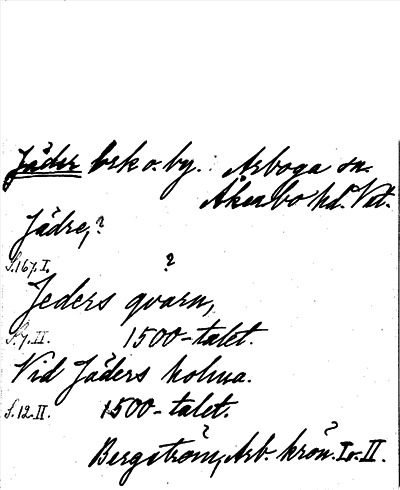 Jäder brk o. by. Arboga sn.
Åkerbo hd. Vstm.
Jädre, ?
S. 167. I.
?
Jeders qvarn,
S. 7. II. 1500-talet.
Vid Jäders holma.
S. 12. II. 1500-talet.
? ?
Bergström, Arb. krön. I o. II.